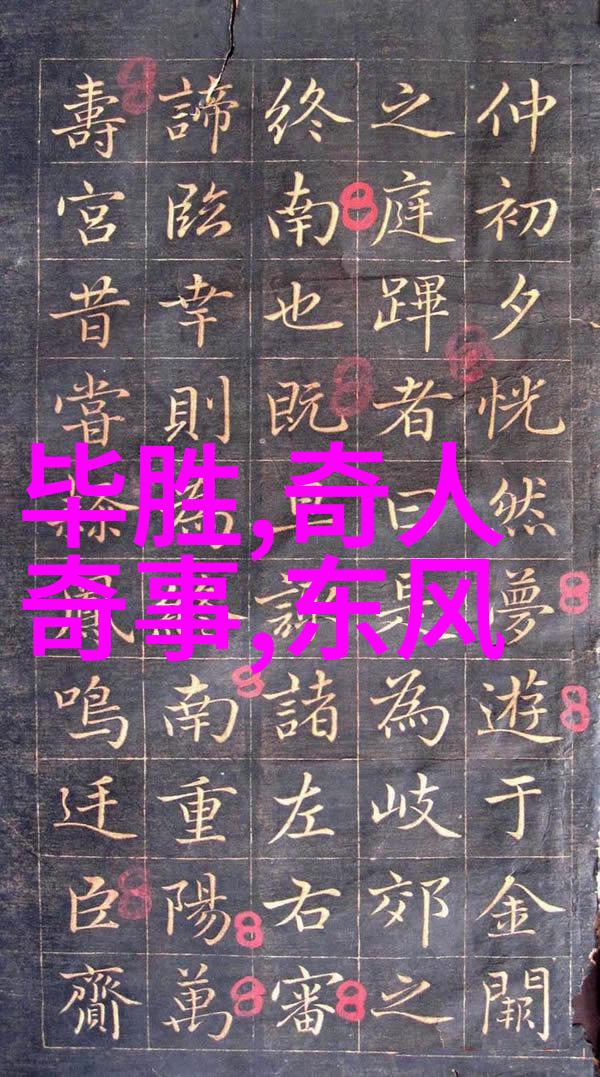 仲初夕恍然夢遊于金闕
之庭蹕者曰為岐郊之
終南也既諸左右審
諦臨幸則南重陽萬
壽宮昔嘗鳳鳴廷臣齎
毕胜,奇人
奇事,东风